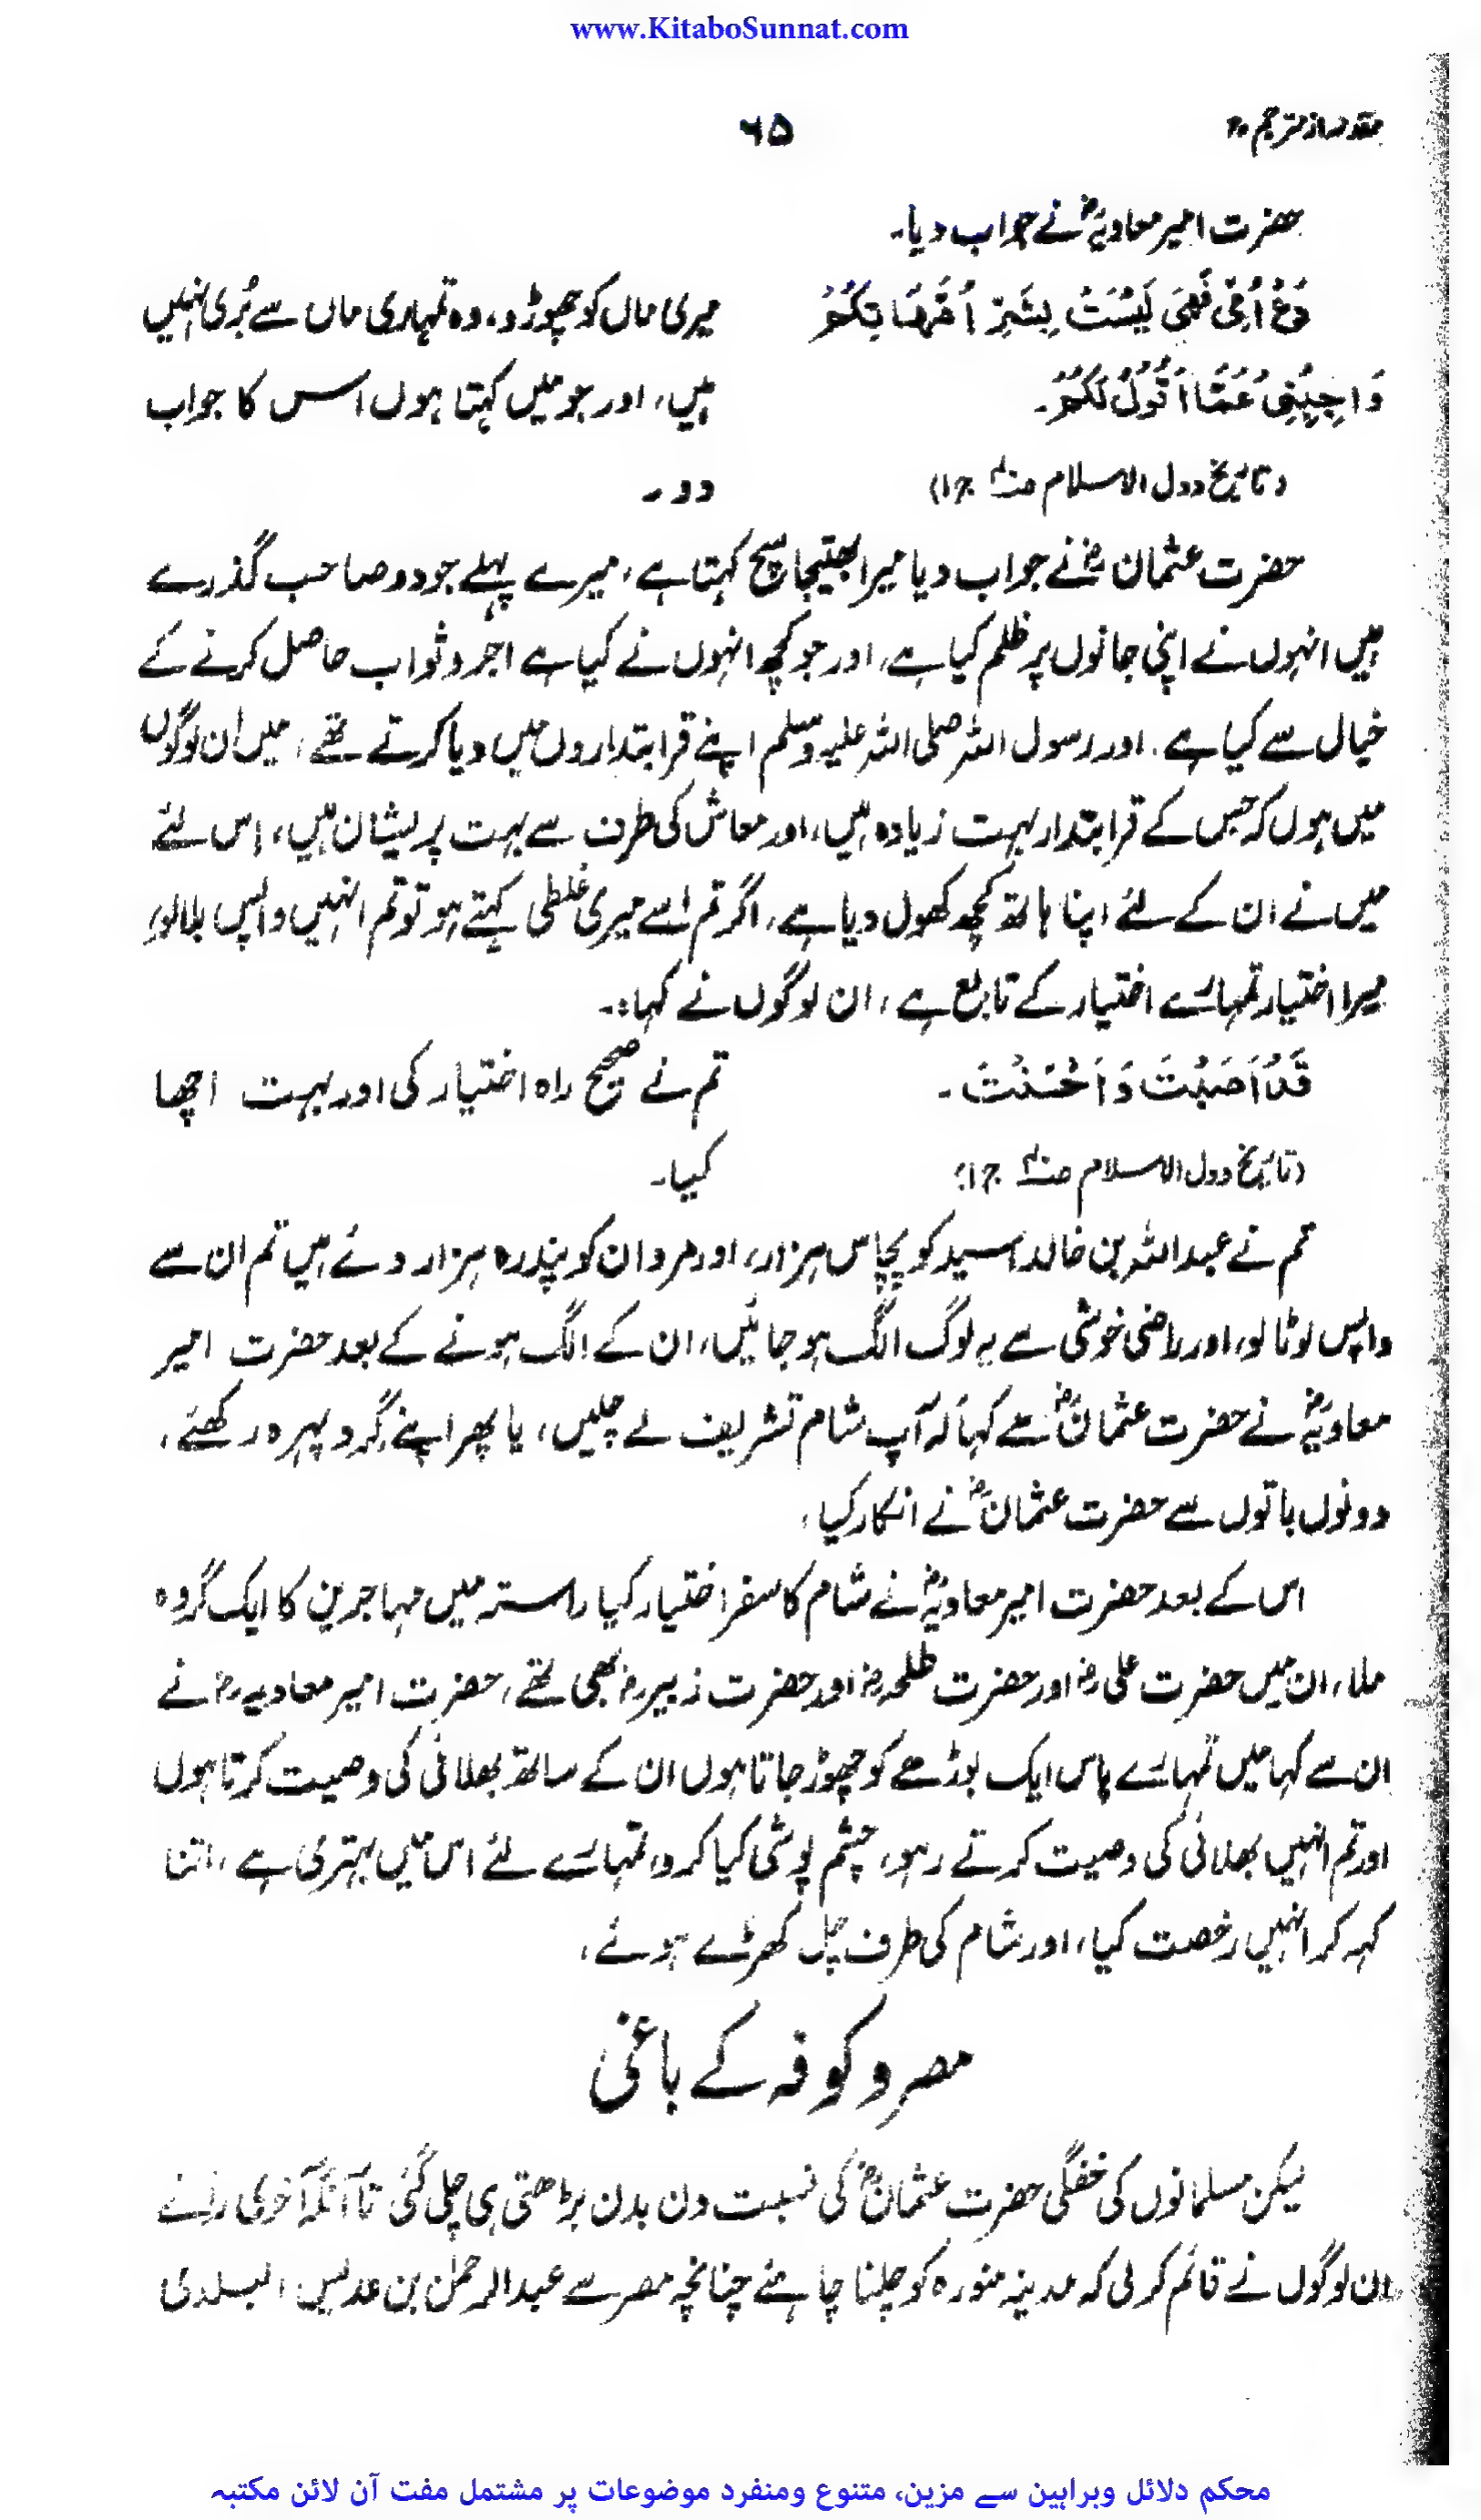 www.KitaboSunnat.com
مقدمہ از مترجم ۶۵
حضرت امیر معاویہؓ نے جواب دیا۔
دَعْ اُمِّیْ فَھِیَ لَیْسَتْ بِشَرِّ اُمَّھَاتِکُمْ میری ماں کو چھوڑ دو، وہ تمہاری ماں سے بُری نہیں
وَاَجِیْبُنِیْ عَمَّا اَقُوْلُ لَکُمْ۔ ہیں، اور جو میں کہتا ہوں اس کا جواب
(تاریخ دول الاسلام ج۱) دو۔
حضرت عثمانؓ نے جواب دیا میرا بھتیجا سچ کہتا ہے، میرے پہلے جو دو صاحب گذرے
ہیں انہوں نے اپنی جانوں پر ظلم کیا ہے، اور جو کچھ انہوں نے کیا ہے اجر و ثواب حاصل کرنے کے
خیال سے کیا ہے، اور رسول اللہ صلی اللہ علیہ وسلم اپنے قرابتداروں میں دیا کرتے تھے، میں ان لوگوں
میں ہوں کہ جس کے قرابتدار بہت زیادہ ہیں، اور معاش کی طرف سے بہت پریشان ہیں، اس لئے
میں نے ان کے لئے اپنا ہاتھ کچھ کھول دیا ہے، اگر تم اسے میری غلطی کہتے ہو تو تم انہیں واپس بلالو،
میرا اختیار تمہارے اختیار کے تابع ہے، ان لوگوں نے کہا:۔
قَدْ اَصَبْتَ وَاَحْسَنْتَ۔ تم نے صحیح راہ اختیار کی اور بہت اچھا
(تاریخ دول الاسلام ج۱) کیا۔
تم نے عبداللہ بن خالد اسید کو پچاس ہزار، اور مروان کو پندرہ ہزار دئے ہیں تم ان سے
واپس لوٹا لو، اور راضی خوشی سے یہ لوگ الگ ہو جائیں، ان کے الگ ہونے کے بعد حضرت امیر
معاویہؓ نے حضرت عثمانؓ سے کہا کہ آپ شام تشریف لے چلیں، یا پھر اپنے گرد پہرہ رکھئے،
دونوں باتوں سے حضرت عثمانؓ نے انکار کیا،
اس کے بعد حضرت امیر معاویہؓ نے شام کا سفر اختیار کیا راستہ میں مہاجرین کا ایک گروہ
ملا، ان میں حضرت علیؓ اور حضرت طلحہؓ اور حضرت زبیرؓ بھی تھے، حضرت امیر معاویہؓ نے
ان سے کہا میں تمہارے پاس ایک بوڑھے کو چھوڑ جاتا ہوں ان کے ساتھ بھلائی کی وصیت کرتا ہوں
اور تم انہیں بھلائی کی وصیت کرتے رہو، چشم پوشی کیا کرو، تمہارے لئے اس میں بہتری ہے، اتنا
کہہ کر انہیں رخصت کیا، اور شام کی طرف چل کھڑے ہوئے،
مصر و کوفہ کے باغی
لیکن مسلمانوں کی خفگی حضرت عثمانؓ کی نسبت دن بدن بڑھتی ہی چلی گئی تا آنکہ آخری رائے
ان لوگوں نے قائم کر لی کہ مدینہ منورہ کو چلنا چاہئے چنانچہ مصر سے عبدالرحمٰن بن عدیس البلدی
محکم دلائل وبراہین سے مزین، متنوع ومنفرد موضوعات پر مشتمل مفت آن لائن مکتبہ